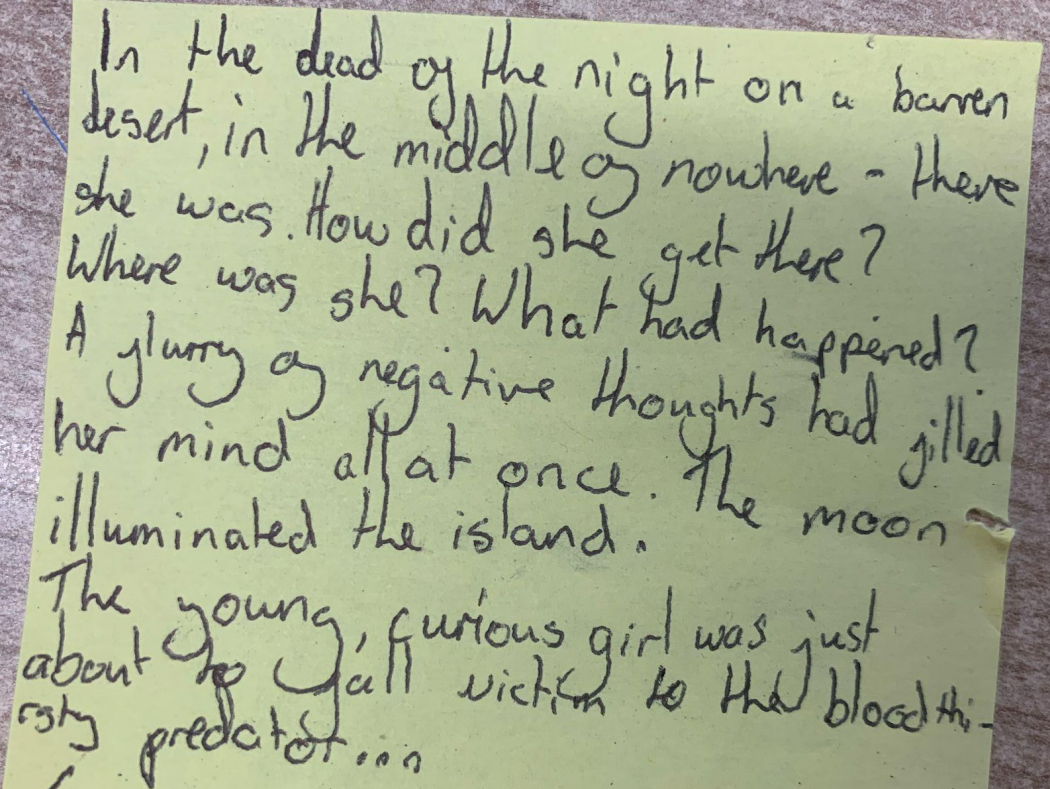 In the dead of the night on a barren
desert, in the middle of nowhere - there
she was. How did she get there?
Where was she? What had happened?
A flurry of negative thoughts had filled
her mind all at once. The moon
illuminated the island.
The young, curious girl was just
about to fall victim to the bloodthi-
rsty predator...